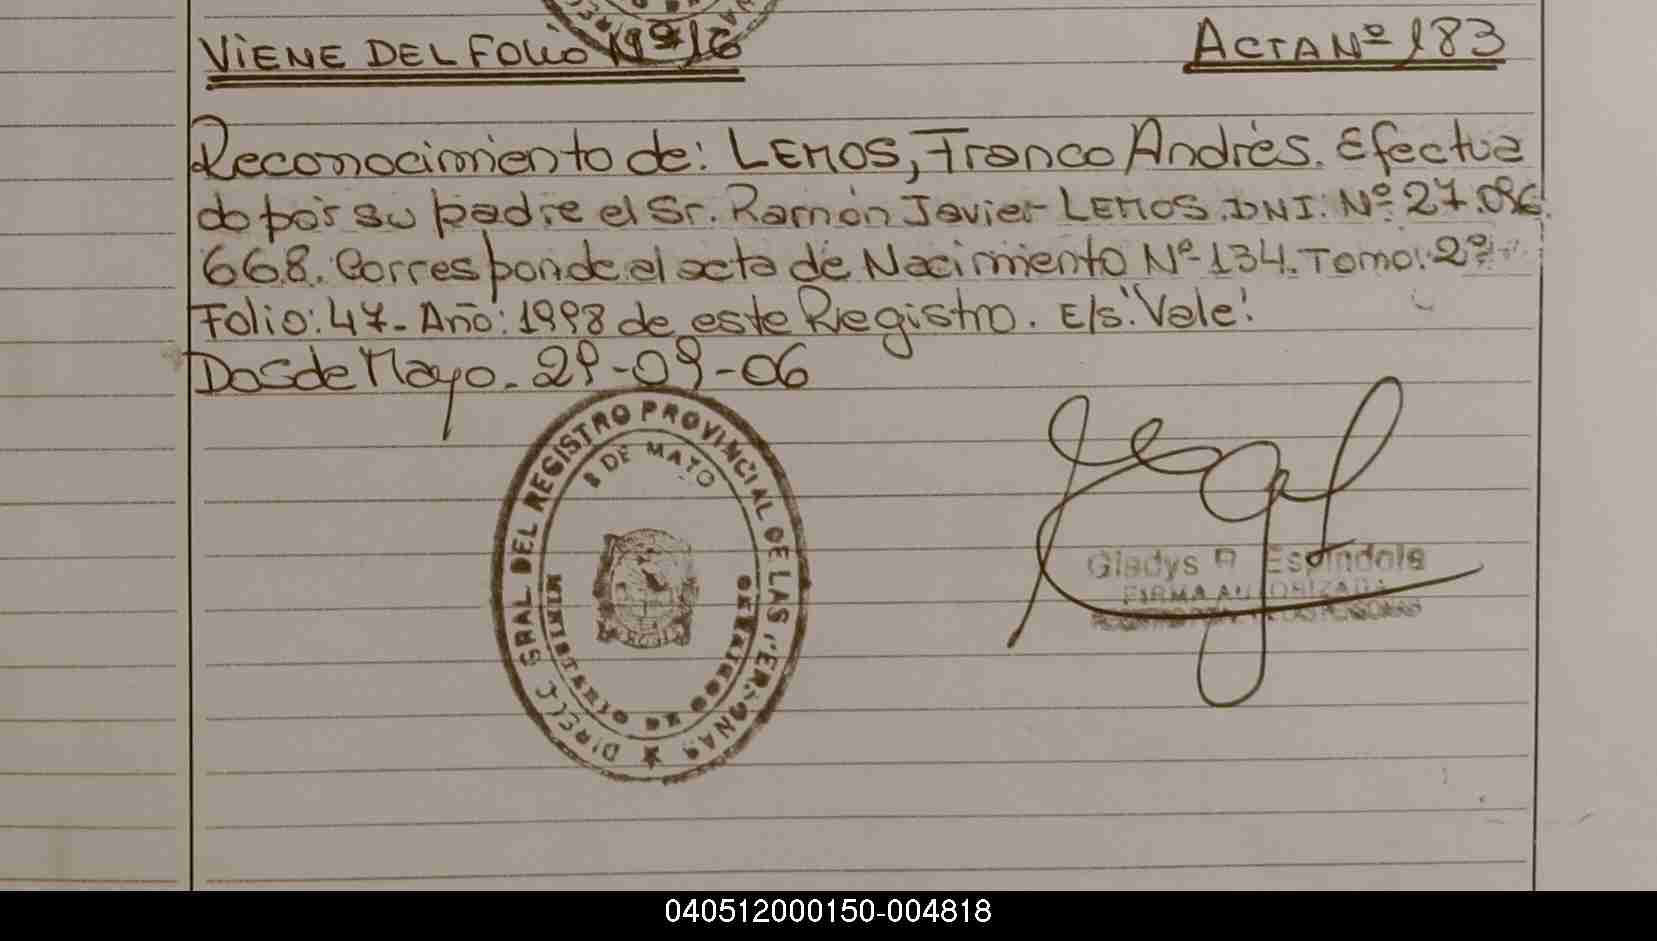 VIENE DEL FOLIO Nº 16
ACTA Nº 183
Reconocimiento de: LEMOS, Franco Andrés. Efectua
do por su padre el Sr. Ramón Javier LEMOS. DNI. Nº 27.086.
668. Corresponde al acta de Nacimiento Nº 134. Tomo: 2º
Folio: 47- Año: 1998 de este Registro. E/s: "Vale".
Dos de Mayo. 29-09-06
DIRECC. GRAL. DEL REGISTRO PROVINCIAL DE LAS PERSONAS
2 DE MAYO
MINISTERIO DE GOBIERNO
Gladys R Espindola
FIRMA AUTORIZADA
040512000150-004818